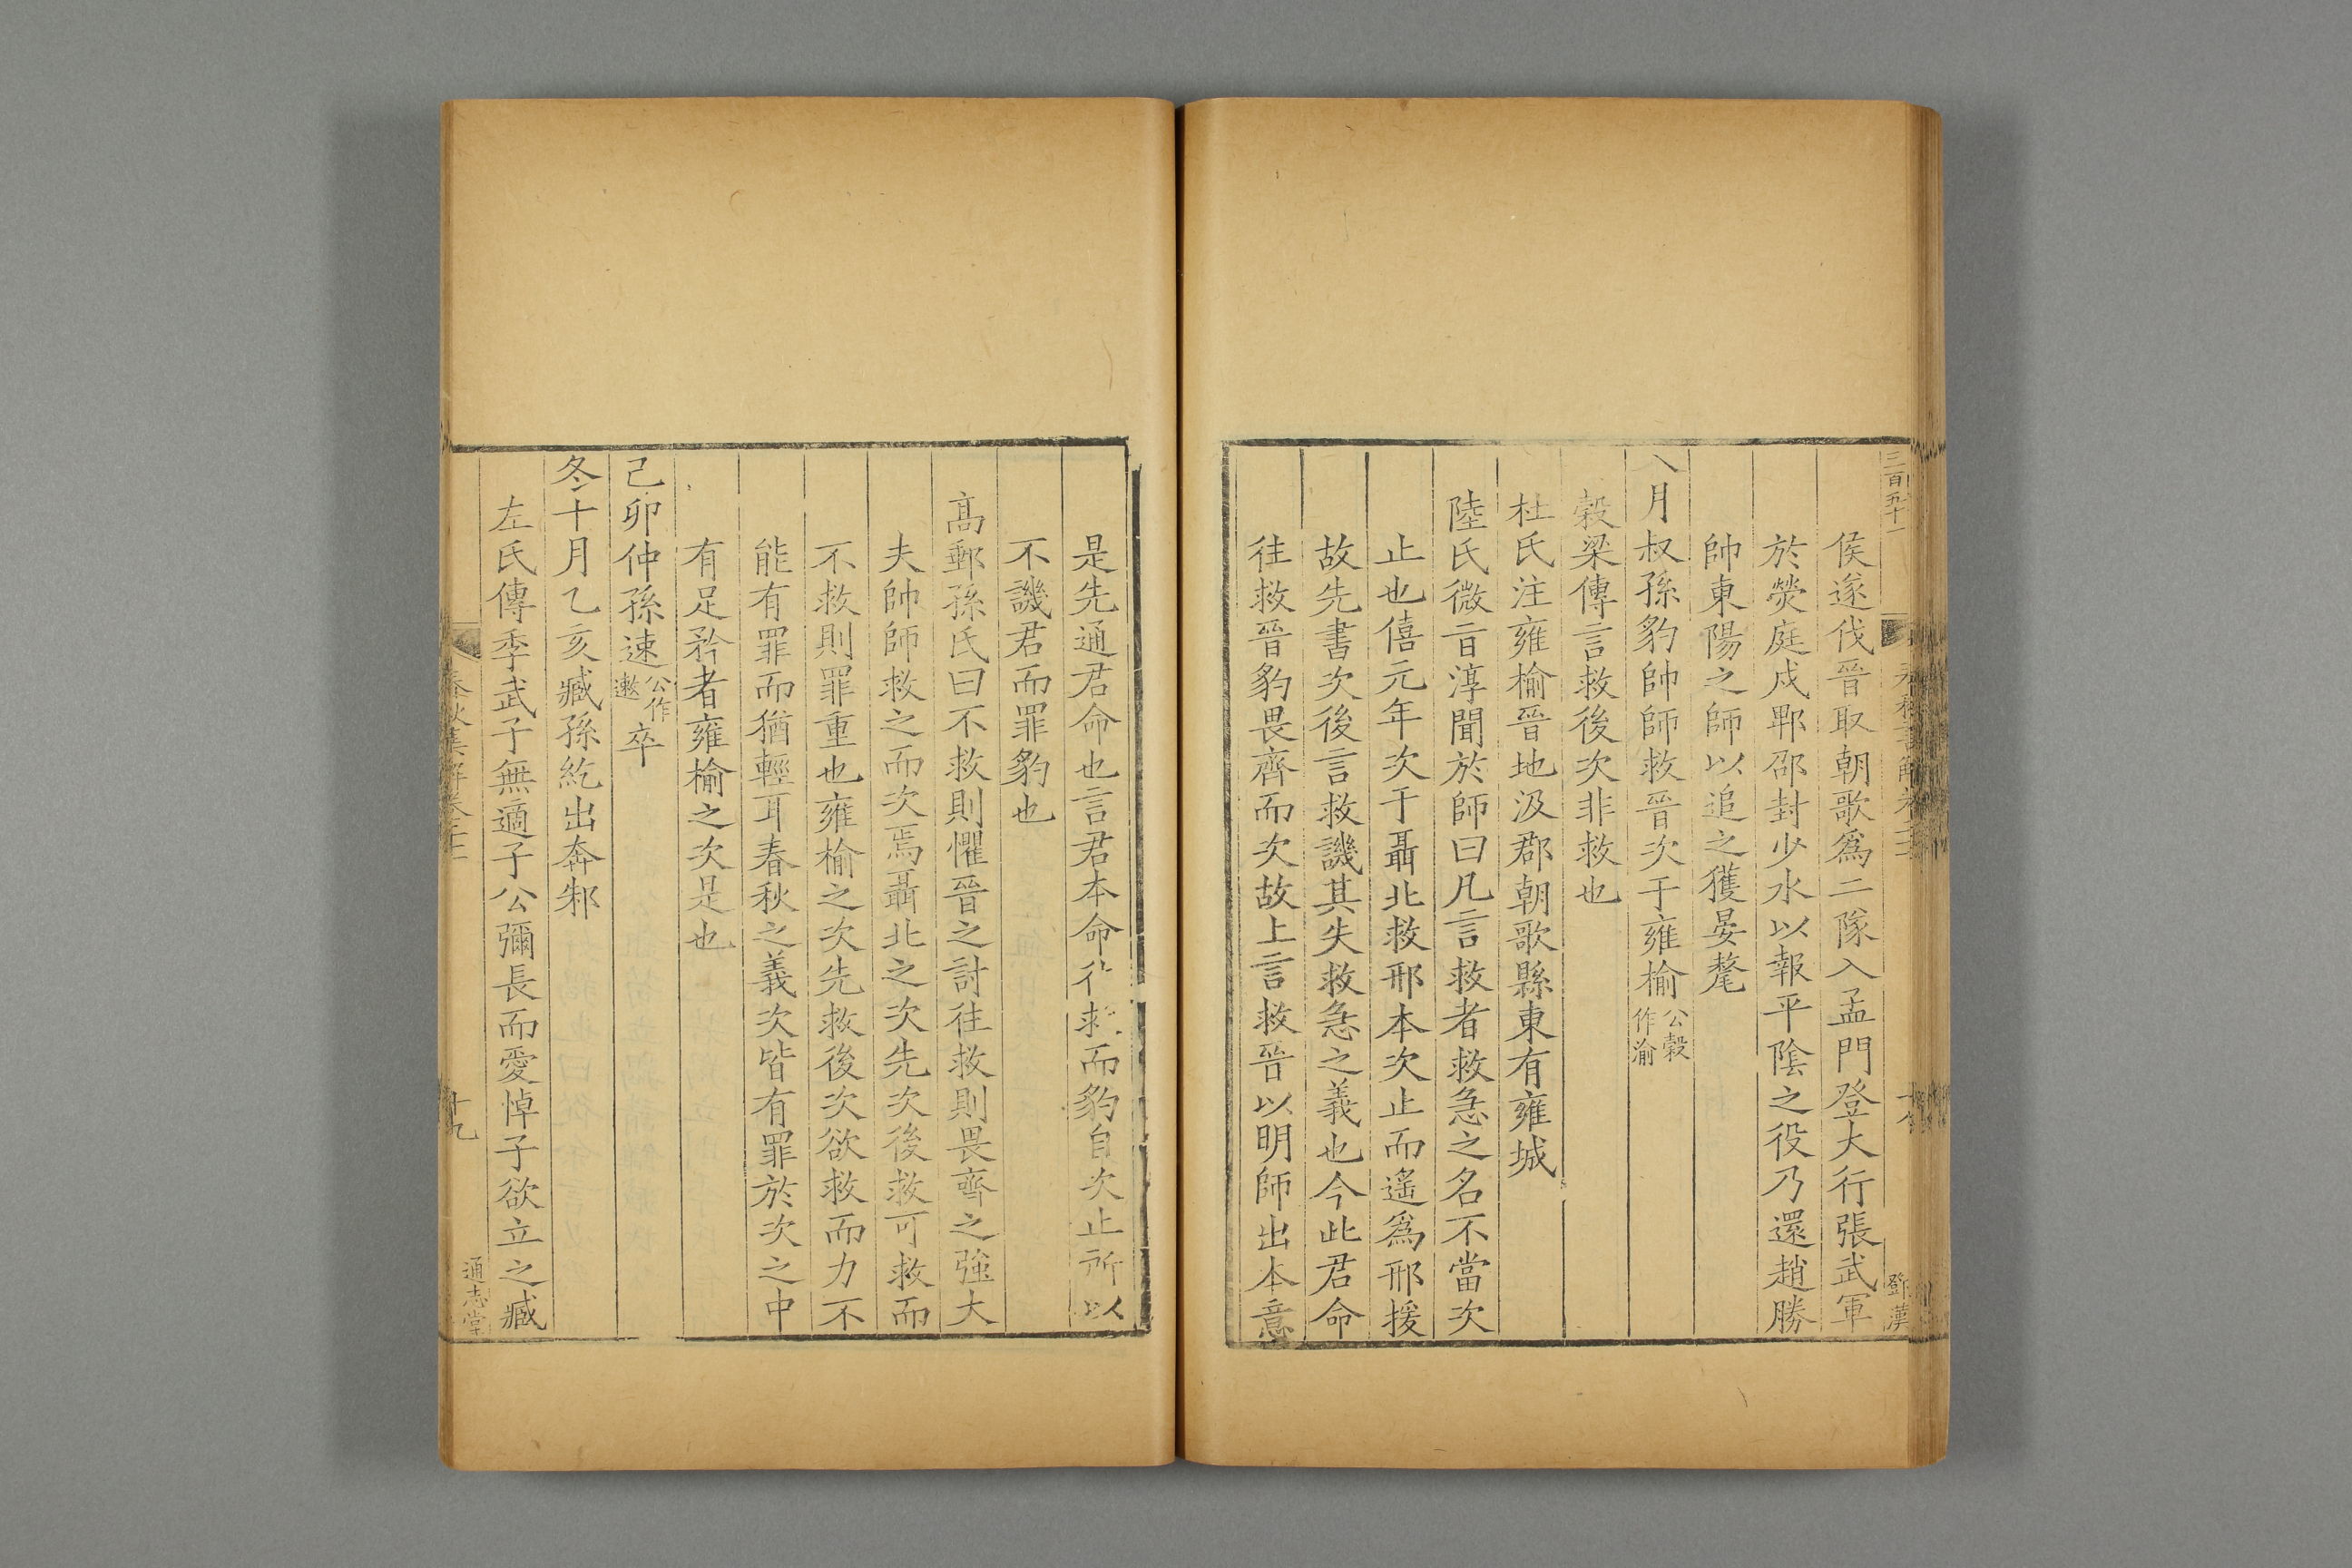 三百五十一
鄧漢
侯遂伐晉取朝歌爲二隊入孟門登大行張武軍
於熒庭戍郫邵封少水以報平陰之役乃還趙勝
帥東陽之師以追之獲晏氂
八月叔孫豹帥師救晉次于雍榆公穀作渝
穀梁傳言救後次非救也
杜氏注雍榆晉地汲郡朝歌縣東有雍城
陸氏微旨淳聞於師曰凡言救者救急之名不當次
止也僖元年次于聶北救邢本次止而遙爲邢援
故先書次後言救譏其失救急之義也今此君命
往救晉豹畏齊而次故上言救晉以明師出本意
是先通君命也言君本命往救而豹自次止所以
不譏君而罪豹也
高郵孫氏曰不救則懼晉之討往救則畏齊之強大
夫帥師救之而次焉聶北之次先次後救可救而
不救則罪重也雍榆之次先救後次欲救而力不
能有罪而猶輕耳春秋之義次皆有罪於次之中
有足矜者雍榆之次是也
己卯仲孫速公作遬卒
冬十月乙亥臧孫紇出奔邾
左氏傳季武子無適子公彌長而愛悼子欲立之臧
十九
通志堂